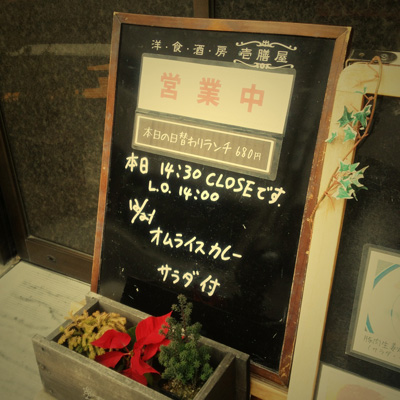 洋・食・酒・房 壱膳屋
営業中
本日の日替わりランチ 680円
本日 14:30 CLOSEです.
L.O. 14:00
12/21
オムライスカレー
サラダ付